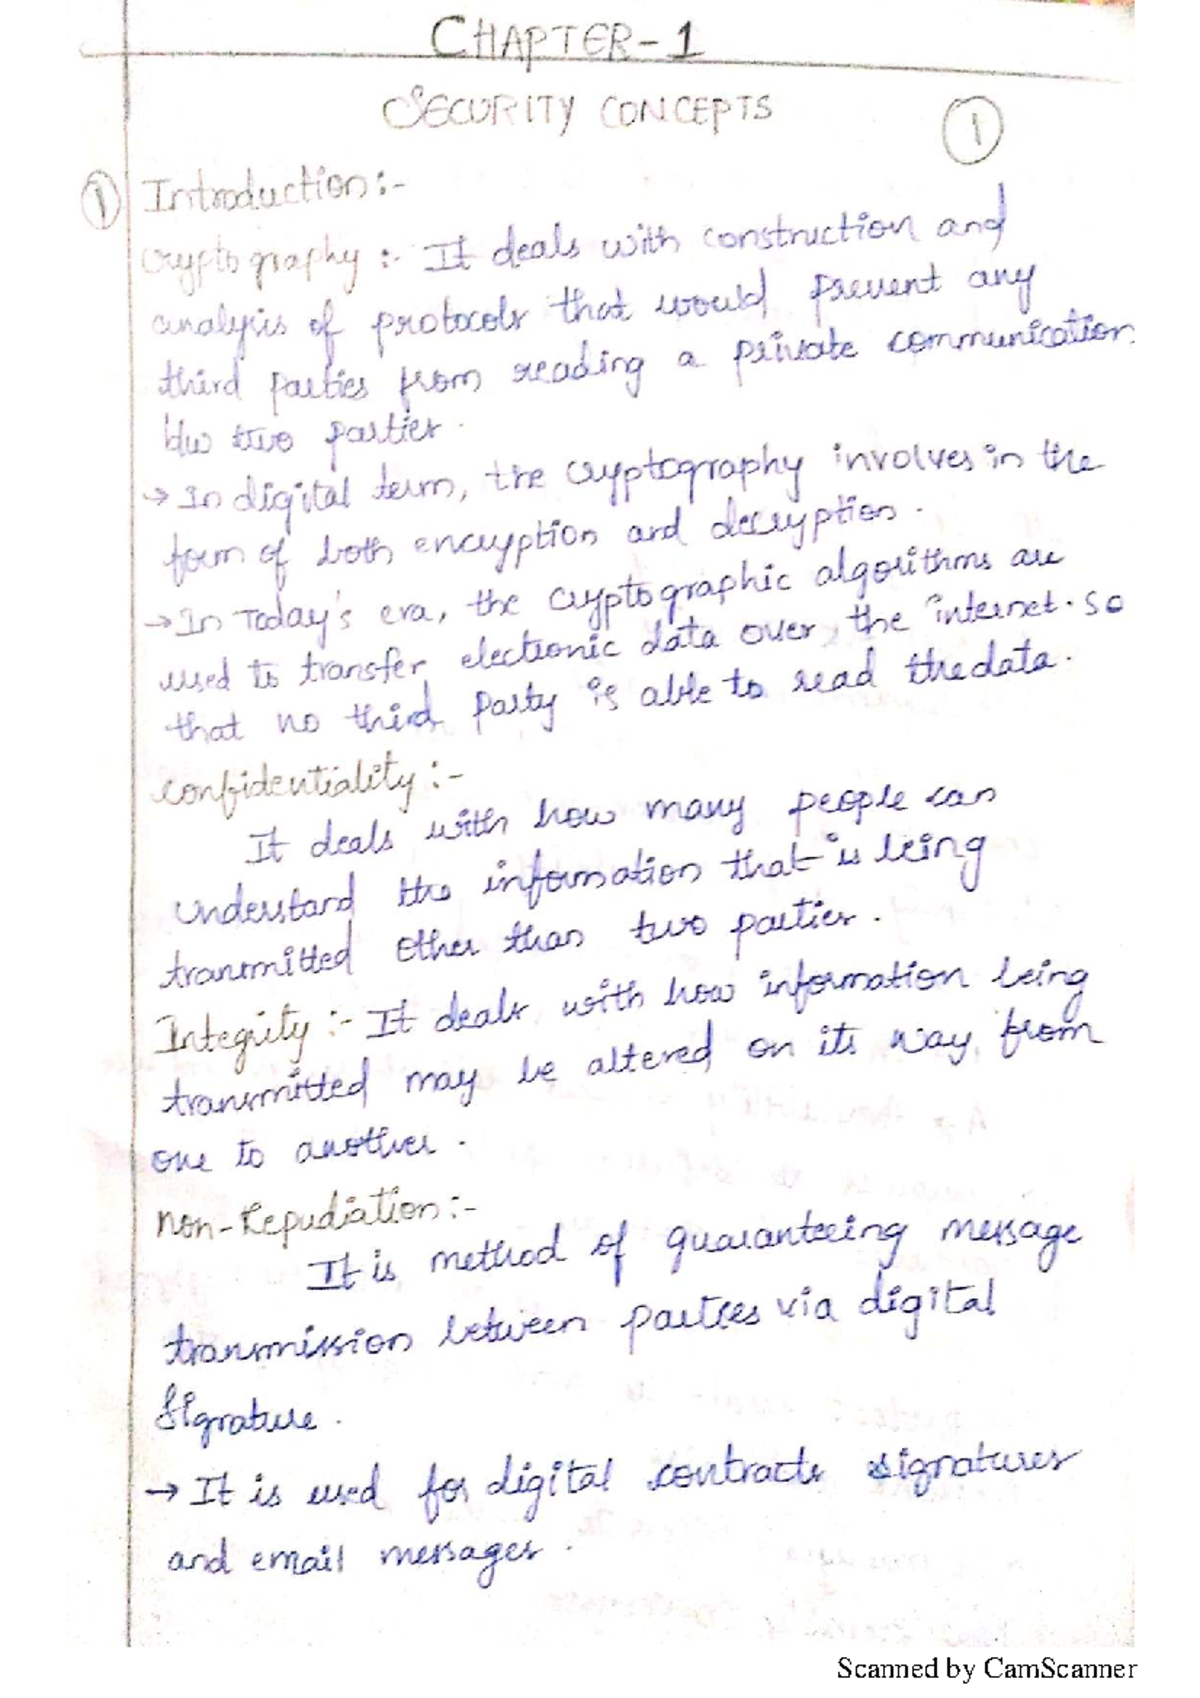 CHAPTER-1
SECURITY CONCEPTS
1
1 Introduction:-
Cryptography :- It deals with construction and
analysis of protocols that would prevent any
third parties from reading a private communication
b/w two parties.
→ In digital term, the cryptography involves in the
form of both encryption and decryption.
→ In Today's era, the cryptographic algorithms are
used to transfer electronic data over the internet. so
that no third party is able to read the data.
Confidentiality :-
It deals with how many people can
understand the information that is being
transmitted other than two parties.
Integrity :- It deals with how information being
transmitted may be altered on its way from
one to another.
Non-Repudiation:-
It is method of guaranteeing message
transmission between parties via digital
Signature.
→ It is used for digital contracts signatures
and email messages.
Scanned by CamScanner